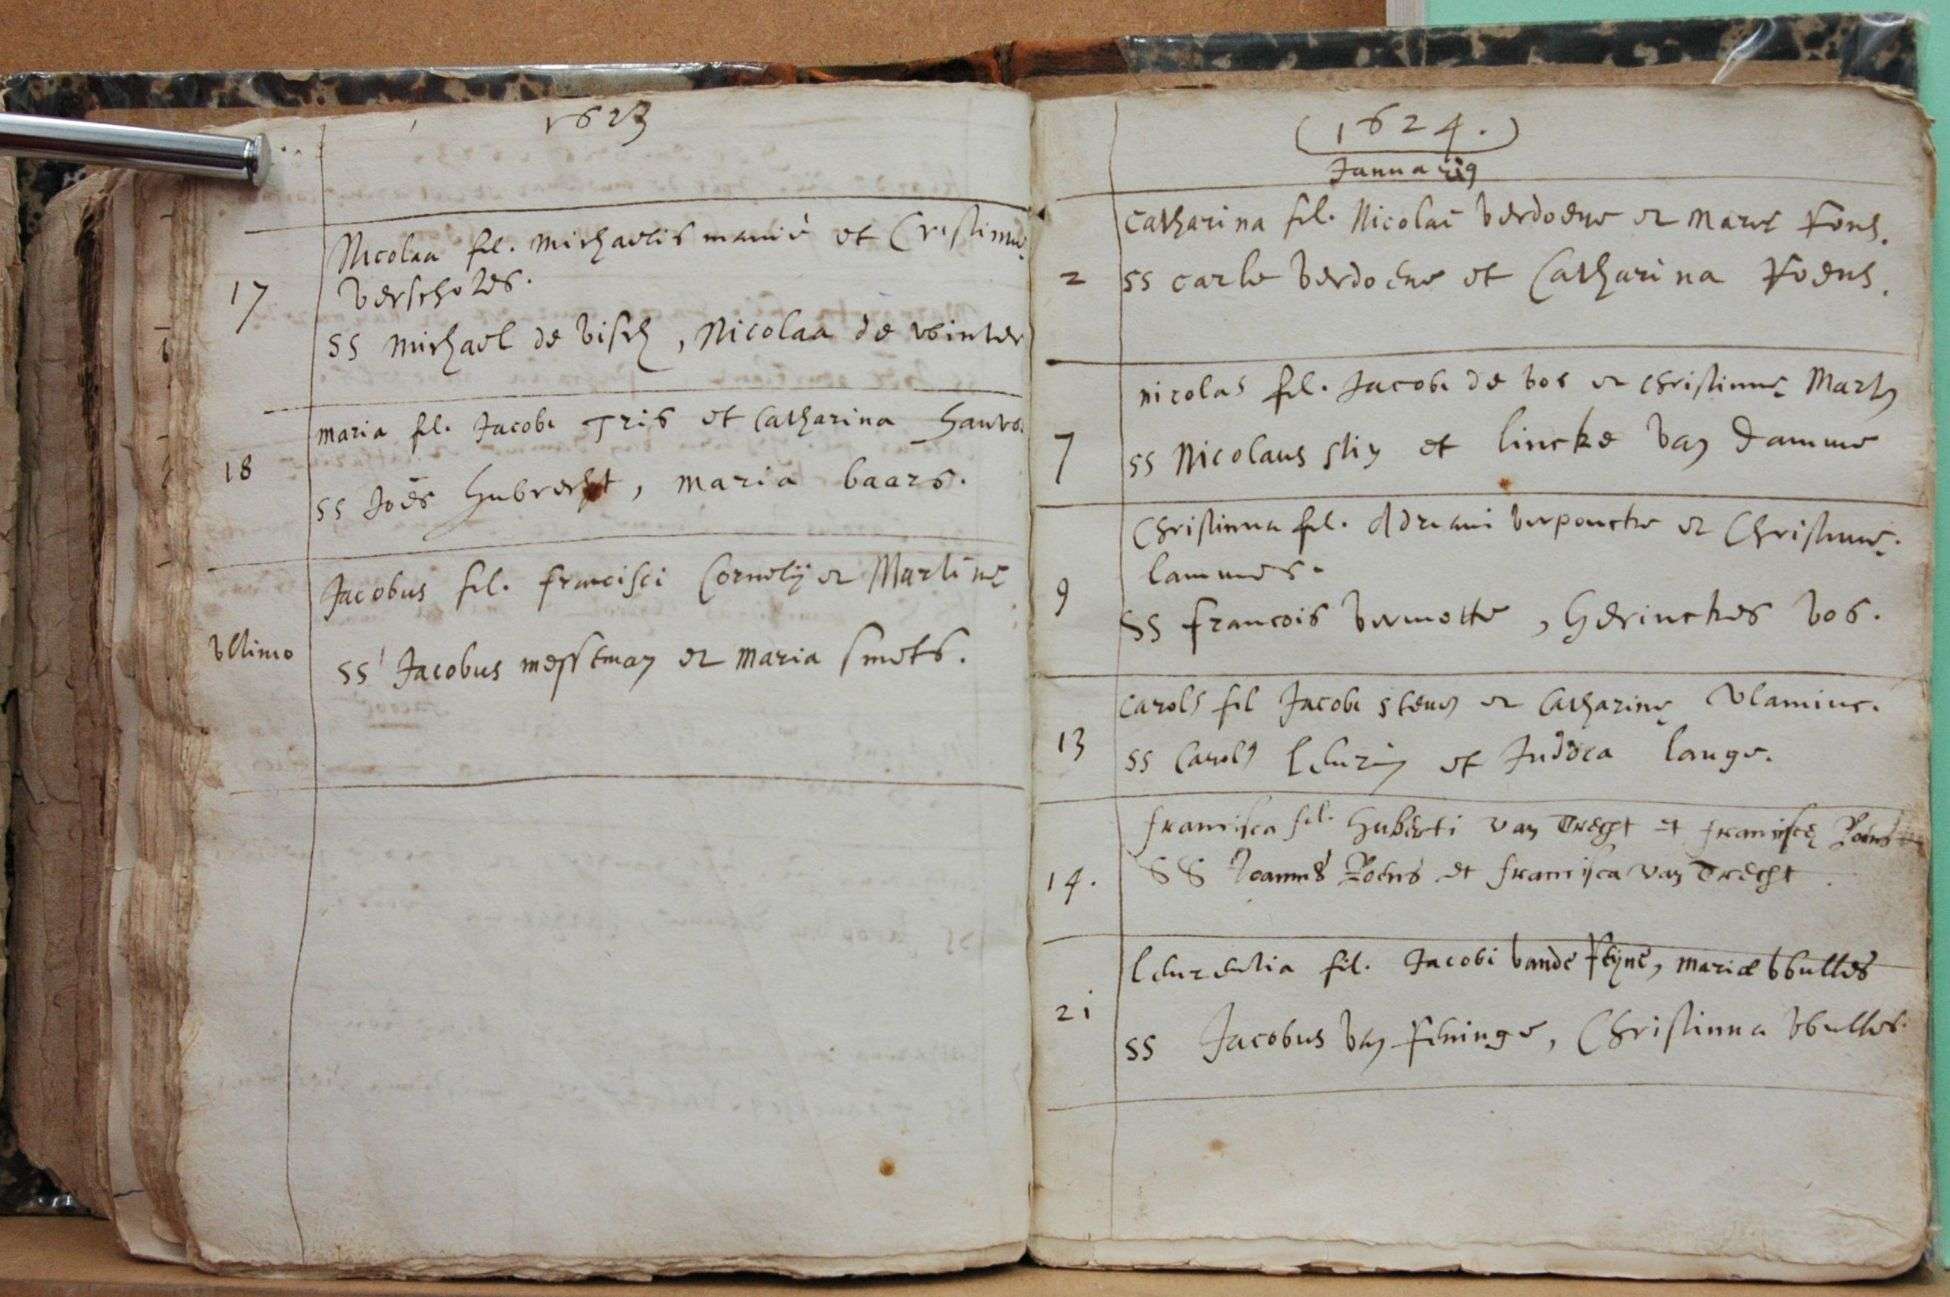 1623
Nicolaa fil. Michaelis manié et Cristinae
17
verscholes.
ss Michael de visch, Nicolaa de winter
maria fil. Jacobi Tris et Catharina
18
ss Joēs Hubrecht, maria baars.
Jacobus fil. francisci Cornelij et Martinę
Ultimo
ss Jacobus messeman et maria smets.
(1624.)
Januarius
Catharina fil. Nicolai verdoene et Marie
2
ss carle verdoene et Catharina
nicolas fil. Jacobi de vos et Christinnę
7
ss Nicolaus et lincke van damme
Christinna fil. Adriani verpoucke et Christinnę
lammes.
9
ss francois vermotte, herinckes vos.
Carols fil Jacobi steven et Catharinę vlaminc.
13
ss Carols et Judoca lange.
francisca fil. huberti van Trecht et franciscę
14.
ss Joannes et francisca van Trecht
leurentia fil. Jacobi vande, mariæ wulles
21
ss Jacobus van, Christinna wulles.